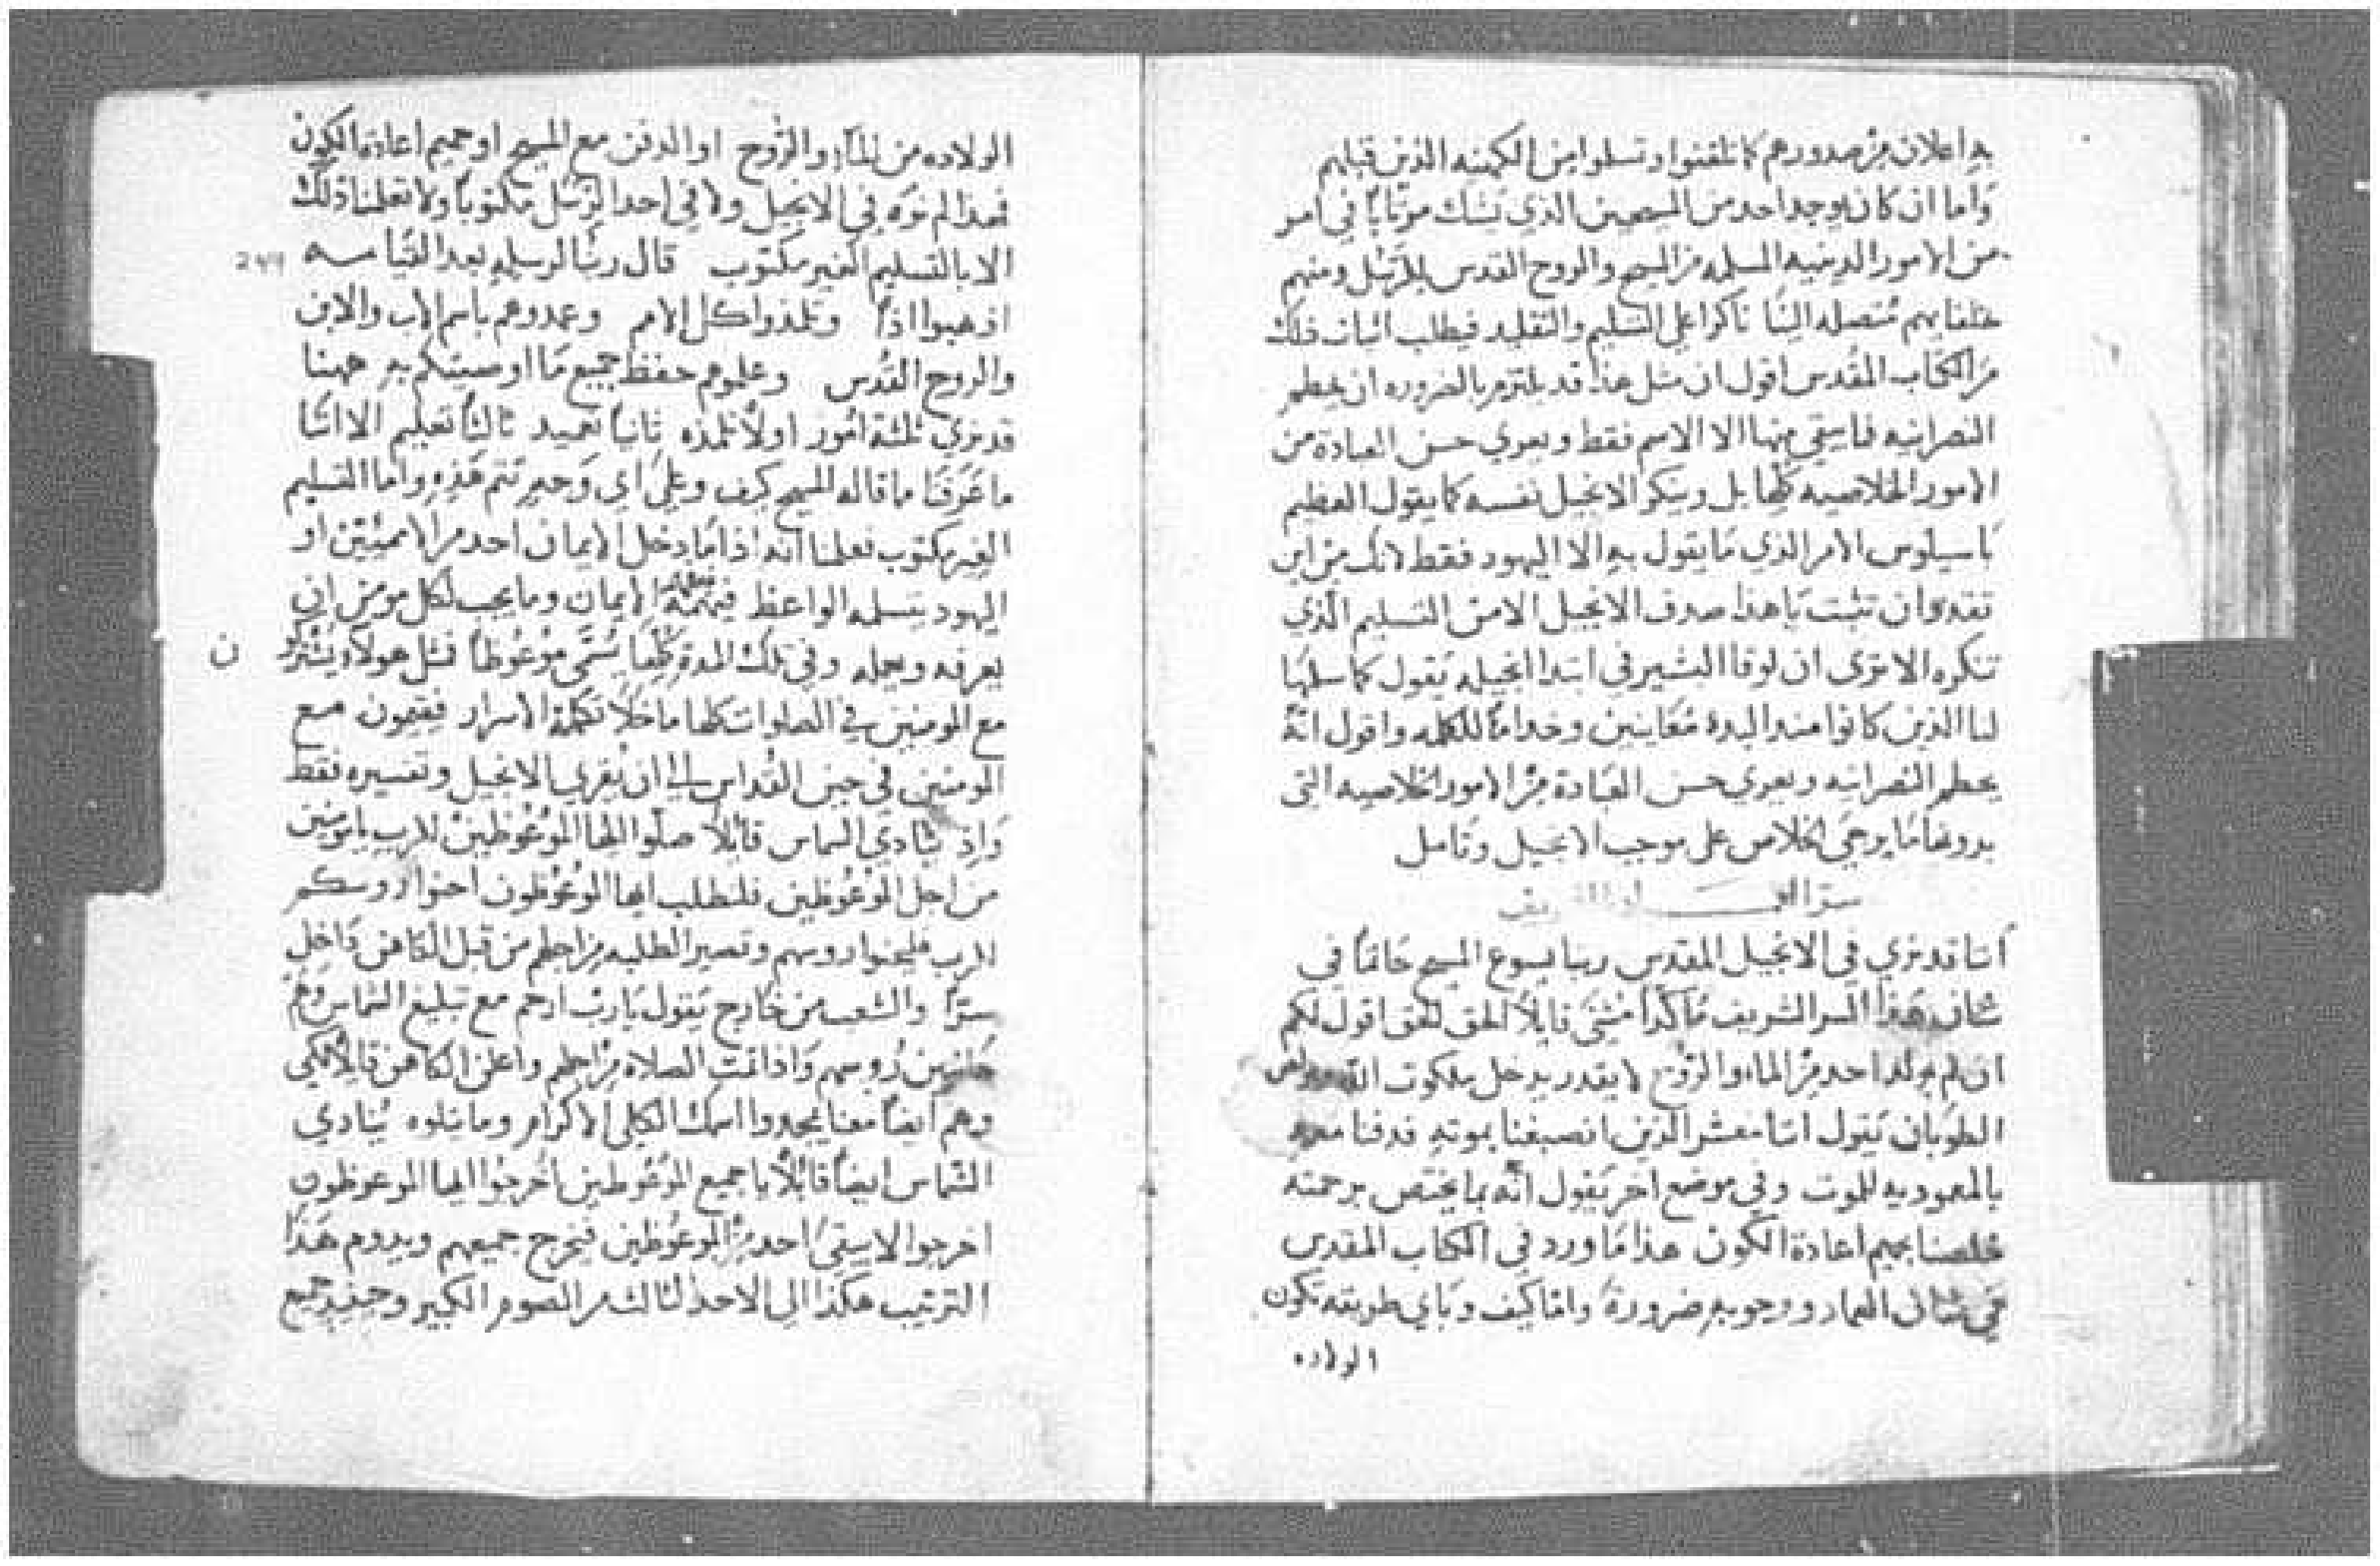 به اعلان من صدورهم كما تلقنوا وتسلوا من الكهنه الذين قبلهم
وَاما ان كان يوجد احد من المسيحيين الذي يَشك مرتاباً في امر
من الامور الدينيه المسلمه من المسيح والروح القدس للرسل ومنهم
خلفايهم متصله الينَا ناكرا على التسليم والتقليد فيطلب اثبات ذلك
من الكتاب المقدس اقول ان مثل هذا قد يلتزم بالضروره ان يحطم
النصرانيه فايبقي منها الا الاسم فقط ويعري حسن العبادة من
الامور الخلاصيه كلها بل وينكر الانجيل نفسه كما يقول العظيم
بَاسيلوس الامر الذي مَا يقول به الا اليهود فقط لانك من اين
تقدر ان تثبت يَا هذا صدق الانجيل الا من التسليم الذي
تنكره الا ترى ان لوقا البشير في ابتدا انجيله يَقول كما سلمها
لنا الذين كانوا منذ البدء مُعَاينين وخداماً للكلمه واقول انهُ
يحطم النصرانيه ويعري حسن العبَادة من الامور الخلاصيه التي
بدونها مَا يرجَى الخلاص على موجب الانجيل وتَامل
سرّ
اننا قد نري في الانجيل المقدس ربنا يسوع المسيح خاتماً في
شان هَذا السر الشريف مُاكداً مثنيَ قايلاً الحق الحق اقول لكم
ان لم يولد احد من الماء والرّوح لا يقدر يدخل ملكوت الله
الطوبان يَقول اننا معشر الذين انصبغنا بموته قد دفنا معه
بالمعوديه للموت وفي موضع اخر يَقول انّه بما يختص برحمته
خلصنا بحميم اعادة الكون هذا مَا ورد في الكتاب المقدس
في شان العماد ووجوبه ضرورة وامّا كيف وبَاي طريقه تكون
الولاده
الولاده من الماء والرّوح او الدفن مع المسيح او حميم اعادة الكون
فهذا لم نَره في الانجيل ولا في احد الرسل مكتوباً ولا تعلمنا ذلك
الا بالتسليم الغير مكتوب قال ربنا لرسله بعد القيَامه
اذهبوا اذاً وتلمذوا كل الامم وعمدوهم باسم الاب والابن
والروح القُدس وعلموهم حفظ جميع مَا اوصيتكم به ههنا
قد نري ثلثة اُمور اولاً تلمذه ثانياً تعميد ثالثاً تعليم الا اننا
ما عَرَفنَا ما قاله المسيح كيف وعلى اي وَجه تتم هَذه واما التسليم
الغير مكتوب فعلمنا انّه اذا مَا دخل الايمان احد من الامميّين او
اليهود يتسلمه الواعظ فيفهمهُ الايمان وما يجب لكل مومن ان
يعرفه ويعمله وفي تلك المدة كلها يُسَمَّى مَوْعُوظاً فمثل هولاء يشتركو ن
مع المومنين في الصلوات كلها ما خلا تكملة الاسرار فيقيمون مع
المومنين في حين القداس الى ان يُقري الانجيل وتفسيره فقط
وَاذ يُنَادي الشماس قائلاً صلّوا ايها الموْعُوظين للرب يا مومنين
من اجل المَوْعُوظين فلنطلب ايها المَوْعُوظون احنوا روسكم
للرب فليحنوا روسهم وتصير الطلبه من اجلهم من قبل الكاهن دَاخل
سرّاً والشعب من خَارج يَقول يَارب ارحم مع تبليغ الشماس وَهم
حَانيين رُوسهم وَاذا تمت الصلاه من اجلهم واعلن الكاهن قايلاً لكي
وهم ايضاً معنا يمجدوا اسمك الكلي الاكرام وما يتلوه يُنادي
الشّماس ايضاً قَائلاً يا جميع المَوْعُوظين اخرجُوا ايها الموعوظون
اخرجوا لا يبقىَ احد من المَوعُوظين فيخرج جميعهم ويدوم هَذا
الترتيب هَكذا الى الاحد الثالث من الصوم الكبير وحينيذ جميع